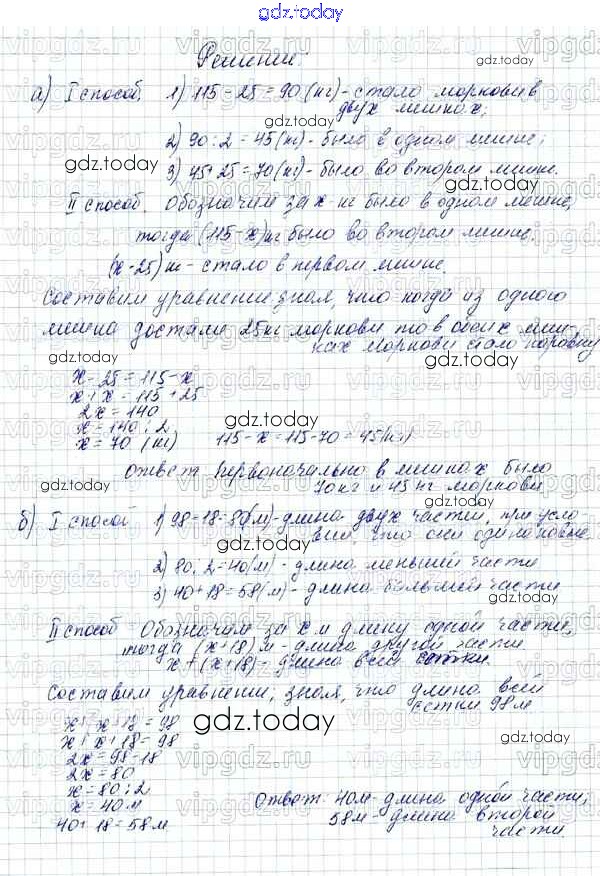 gdz.today
Решение.
а) I способ. 1) 115 - 25 = 90 (кг) - стало моркови в
двух мешках;
2) 90 : 2 = 45 (кг) - было в одном мешке;
3) 45 + 25 = 70 (кг) - было во втором мешке.
II способ. Обозначим за x кг было в одном мешке,
тогда (115 - x) кг было во втором мешке.
(x - 25) кг - стало в первом мешке.
Составим уравнение зная, что когда из одного
мешка достали 25 кг моркови то в обеих меш-
ках моркови стало поровну
x - 25 = 115 - x
x + x = 115 + 25
2x = 140
x = 140 : 2
x = 70 (кг) 115 - x = 115 - 70 = 45 (кг)
Ответ: Первоначально в мешках было
70 кг и 45 кг моркови
б) I способ 1) 98 - 18 = 80 (м) - длина двух частей, при усло-
вии, что они одинаковые
2) 80 : 2 = 40 (м) - длина меньшей части
3) 40 + 18 = 58 (м) - длина большей части
II способ Обозначим за x м длину одной части,
тогда (x + 18) м - длина другой части
x + (x + 18) - длина всей сетки.
Составим уравнение, зная, что длина всей
сетки 98 м
x + x + 18 = 98
x + x + 18 = 98
2x = 98 - 18
2x = 80
x = 80 : 2
x = 40 м
40 + 18 = 58 м
Ответ: 40 м - длина одной части;
58 м - длина второй
части.